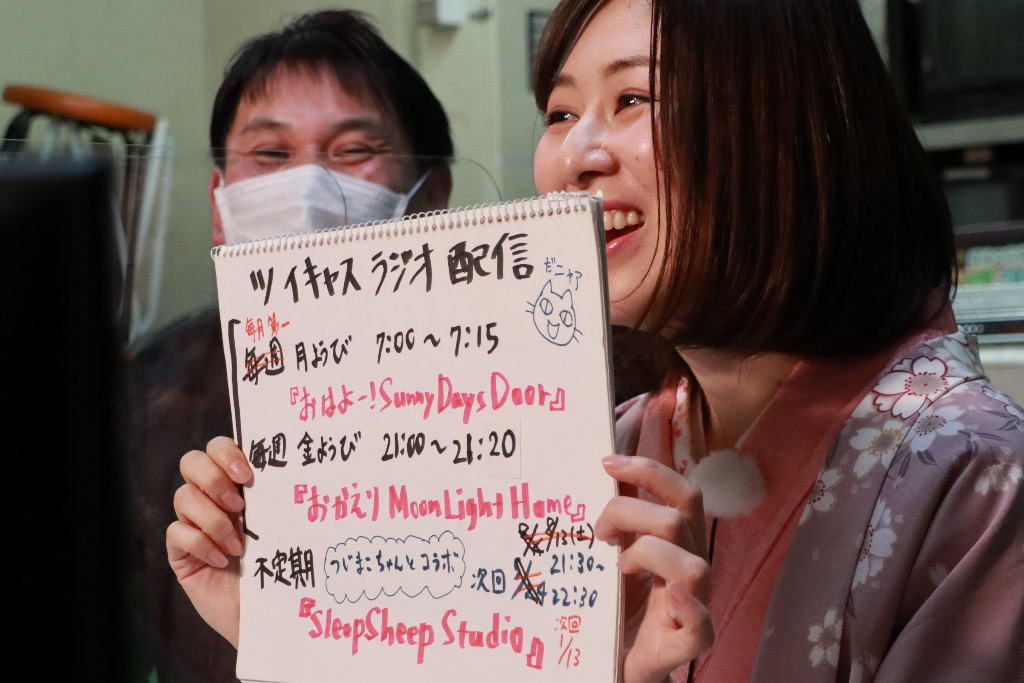 ツイキャス ラジオ 配信
だニャァ
毎月 第一
毎週 月ようび 7:00～7:15
『おはよー!Sunny Days Door』
毎週 金ようび 21:00～21:20
『おかえり Moon Light Home』
不定期 つじまこちゃんとコラボ 次回
8/13(土)
21:30～
22:30
『Sleep Sheep Studio』
次回
1/13